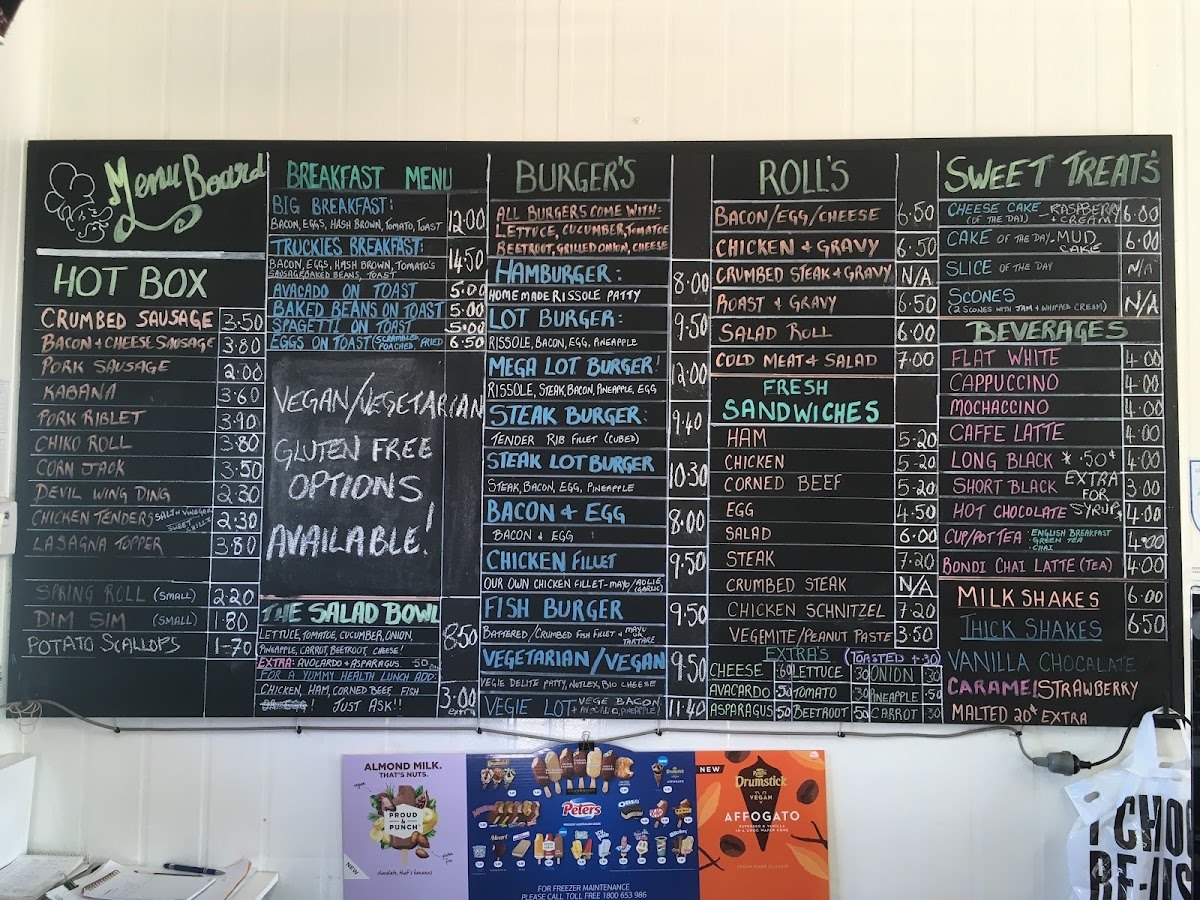 Menu Board
HOT BOX
CRUMBED SAUSAGE 3.50
BACON & CHEESE SAUSAGE 3.80
PORK SAUSAGE 2.00
KABANA 3.60
PORK RIBLET 3.90
CHIKO ROLL 3.80
CORN JACK 3.50
DEVIL WING DING 2.30
CHICKEN TENDERS SALT N VINEGAR SWEET CHILLI 2.30
LASAGNA TOPPER 3.80
SPRING ROLL (SMALL) 2.20
DIM SIM (SMALL) 1.80
POTATO SCALLOPS 1-70
BREAKFAST MENU
BIG BREAKFAST: 12.00
BACON, EGGS, HASH BROWN, TOMATO, TOAST
TRUCKIES BREAKFAST: 14.50
BACON, EGGS, HASH BROWN, TOMATO'S
SAUSAGE BAKED BEANS, TOAST
AVACADO ON TOAST 5.00
BAKED BEANS ON TOAST 5.00
SPAGETTI ON TOAST 5.00
EGGS ON TOAST (SCRAMBLED, POACHED, FRIED 6.50
VEGAN/VEGETARIAN
GLUTEN FREE
OPTIONS
AVAILABLE!
THE SALAD BOWL 8.50
LETTUCE, TOMATOE, CUCUMBER, ONION,
PINEAPPLE, CARROT, BEETROOT, CHEESE!
EXTRA: AVOLARDO & ASPARAGUS. .50
FOR A YUMMY HEALTH LUNCH ADD:
CHICKEN, HAM, CORNED BEEF, FISH 3.00 extra
! JUST ASK!!
BURGER'S
ALL BURGERS COME WITH:
LETTUCE, CUCUMBER, TOMATOE
BEETROOT, GRILLED ONION, CHEESE
HAMBURGER: 8.00
HOMEMADE RISSOLE PATTY
LOT BURGER: 9.50
RISSOLE, BACON, EGG, PINEAPPLE
MEGA LOT BURGER! 12.00
RISSOLE, STEAK, BACON, PINEAPPLE, EGG
STEAK BURGER: 9.40
TENDER RIB FILLET (CUBED)
STEAK LOT BURGER 10.30
STEAK, BACON, EGG, PINEAPPLE
BACON & EGG 8.00
BACON & EGG !
CHICKEN FILLET 9.50
OUR OWN CHICKEN FILLET - MAYO/AOLIE (GARLIC)
FISH BURGER 9.50
BATTERED/CRUMBED FISH FILLET & MAYO OR TARTARE
VEGETARIAN/VEGAN 9.50
VEGIE DELITE PATTY, NOTLEX, BIO CHEESE
VEGIE LOT VEGE BACON 11.40
ROLL'S
BACON/EGG/CHEESE 6.50
CHICKEN & GRAVY 6.50
CRUMBED STEAK & GRAVY N/A
ROAST & GRAVY 6.50
SALAD ROLL 6.00
COLD MEAT & SALAD 7.00
FRESH
SANDWICHES
HAM 5.20
CHICKEN 5-20
CORNED BEEF 5-20
EGG 4.50
SALAD 6.00
STEAK 7.20
CRUMBED STEAK N/A
CHICKEN SCHNITZEL 7.20
VEGEMITE/PEANUT PASTE 3.50
EXTRA'S (TOASTED +.30)
CHEESE .60 LETTUCE .30 ONION .30
AVACARDO .50 TOMATO .30 PINEAPPLE .50
ASPARAGUS .50 BEETROOT .50 CARROT .30
SWEET TREAT'S
CHEESE CAKE (OF THE DAY) - RASPBERRY & CREAM 6.00
CAKE OF THE DAY - MUD CAKE 6.00
SLICE OF THE DAY N/A
SCONES N/A
(2 SCONES WITH JAM & WHIPPED CREAM)
BEVERAGES
FLAT WHITE 4.00
CAPPUCCINO 4.00
MOCHACCINO 4.00
CAFFE LATTE 4.00
LONG BLACK 4.00
SHORT BLACK 3.00
HOT CHOCOLATE 4.00
* .50¢ EXTRA FOR SYRUPS
CUP/POT TEA: ENGLISH BREAKFAST GREEN TEA CHAI 4.00
BONDI CHAI LATTE (TEA) 4.00
MILK SHAKES 6.00
THICK SHAKES 6.50
VANILLA CHOCALATE
CARAMEL STRAWBERRY
MALTED 20¢ EXTRA
ALMOND MILK.
THAT'S NUTS.
PROUD & PUNCH
NEW
chocolate, that's bananas
Peters
FOR FREEZER MAINTENANCE
PLEASE CALL TOLL FREE 1800 653 986
NEW
Drumstick
VEGAN
AFFOGATO
I CHO
RE-US